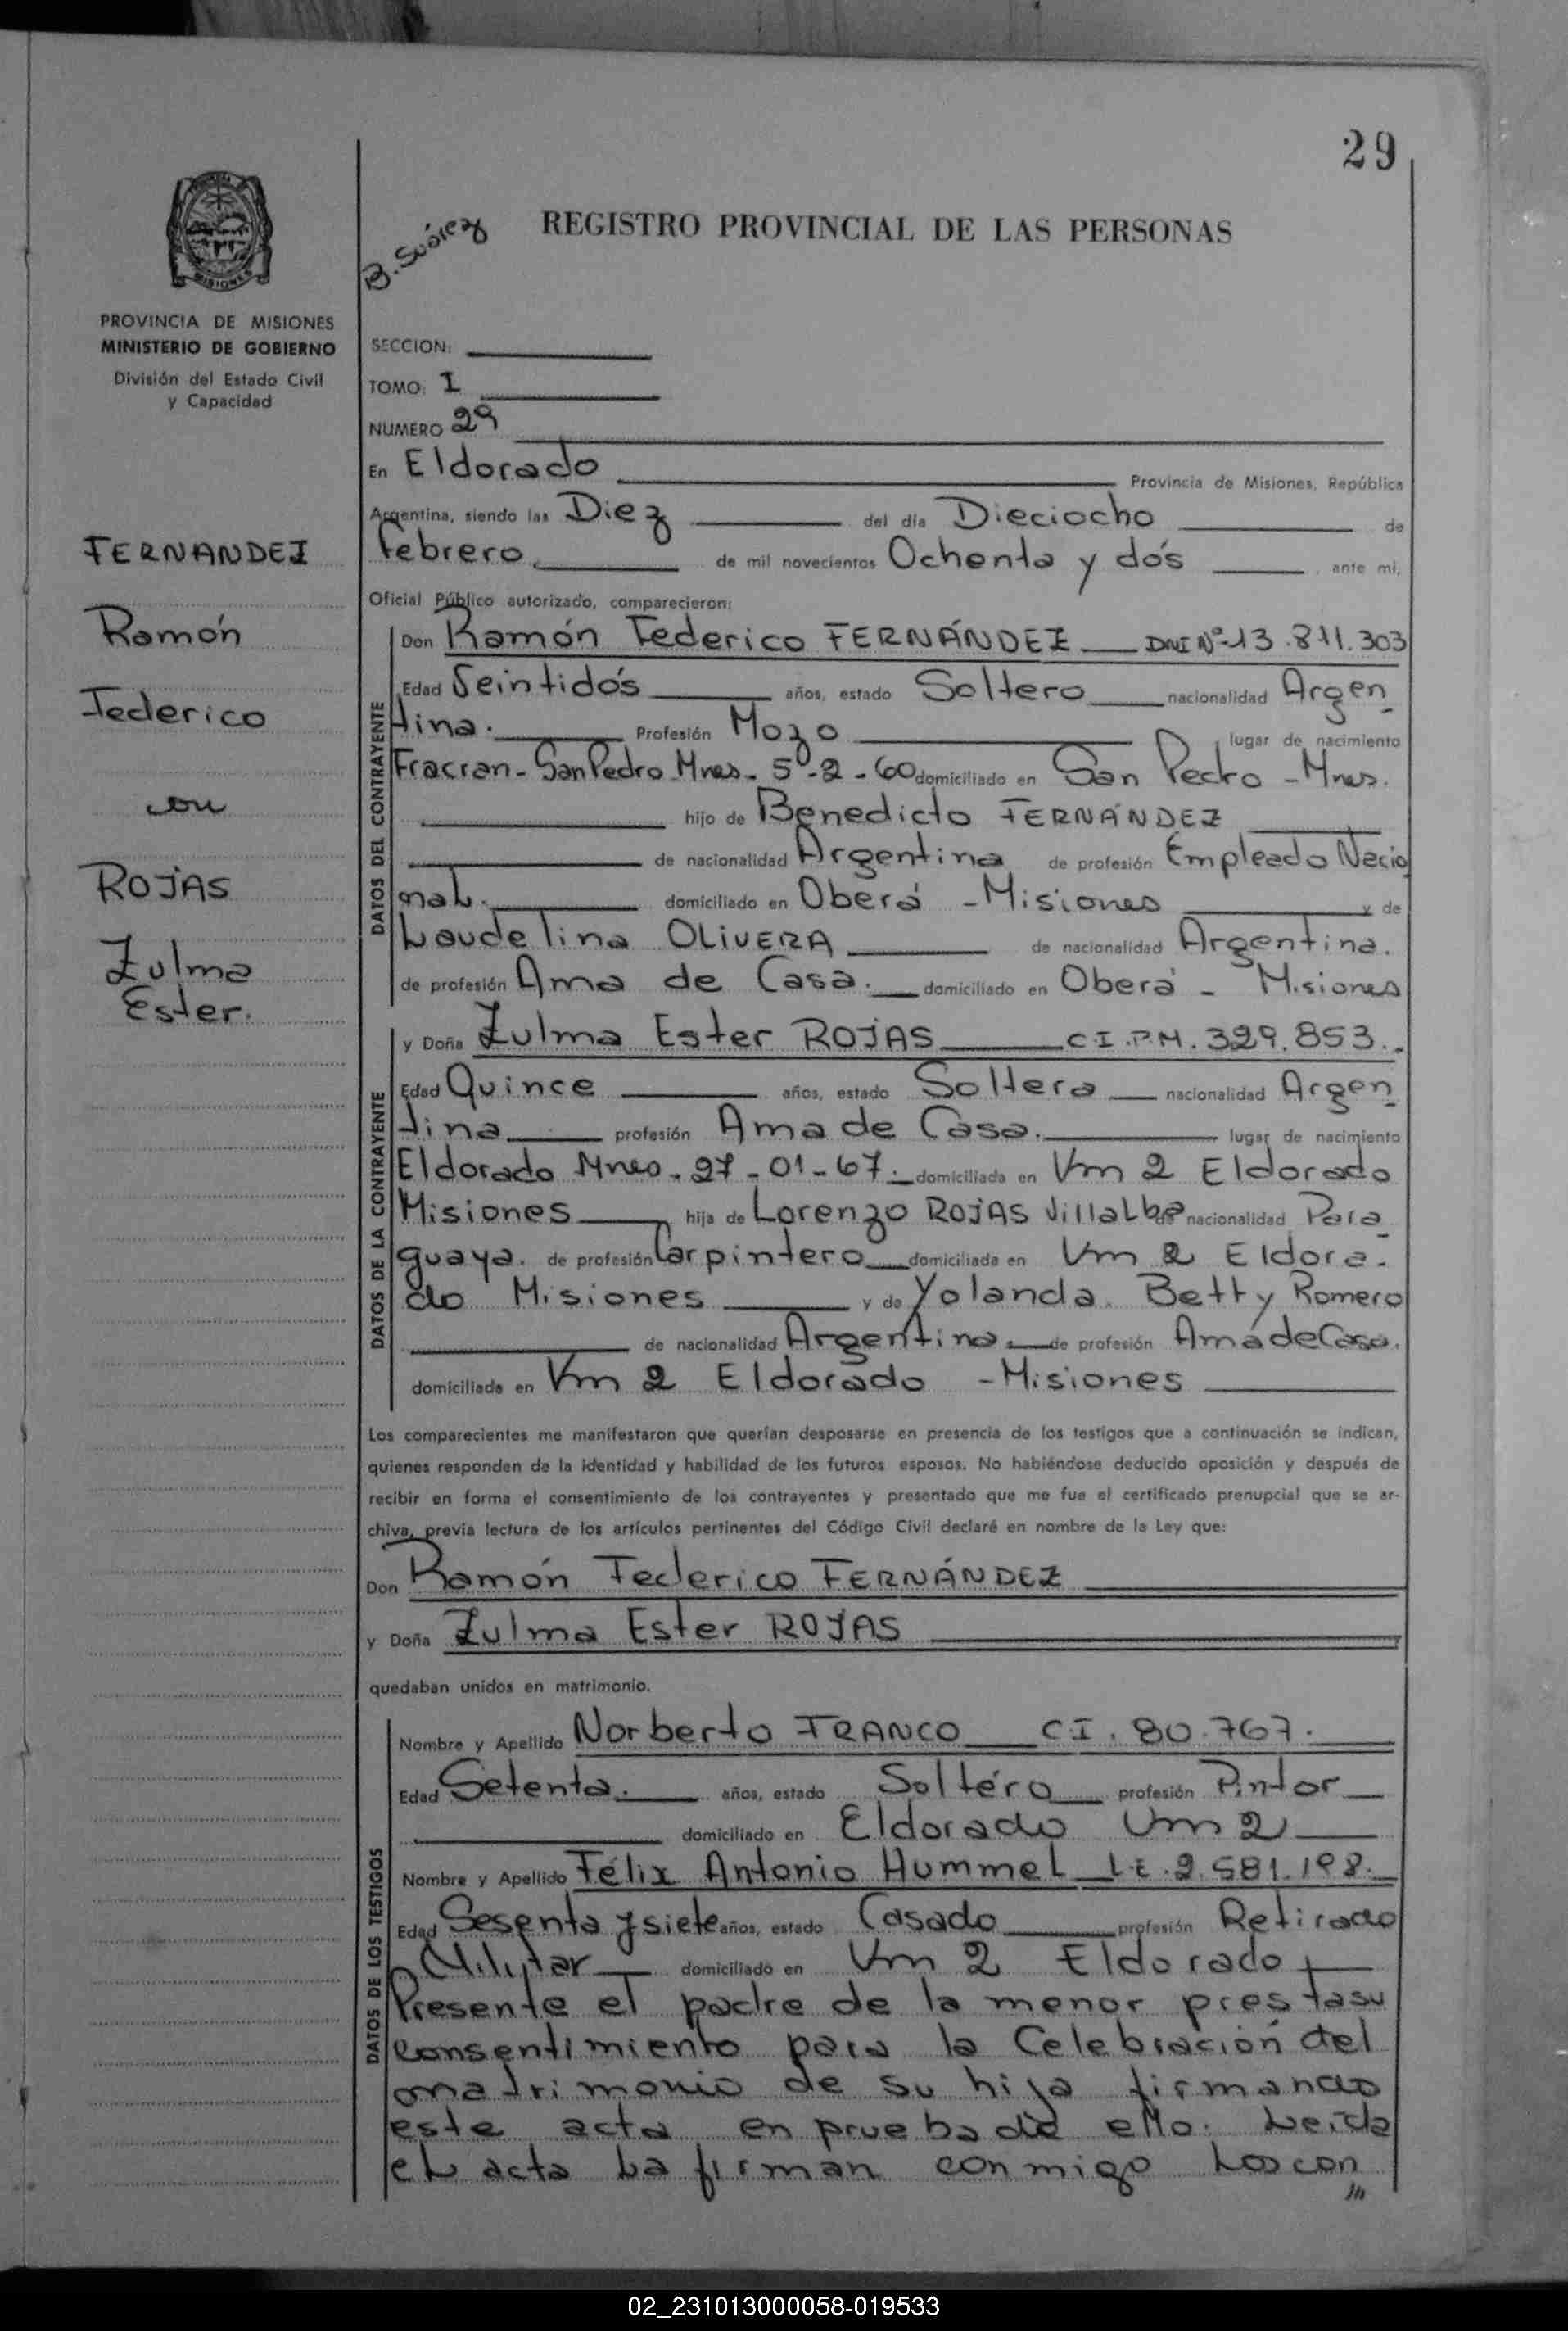 29
B. Suárez
REGISTRO PROVINCIAL DE LAS PERSONAS
MISIONES
PROVINCIA DE MISIONES
MINISTERIO DE GOBIERNO
División del Estado Civil
y Capacidad
FERNANDEZ
Ramón
Federico
con
ROJAS
Zulma
Ester.
SECCION:
TOMO: I
NUMERO 29
En Eldorado Provincia de Misiones, República
Argentina, siendo las Diez del día Dieciocho de
Febrero de mil novecientos Ochenta y dós ante mi,
Oficial Público autorizado, comparecieron:
DATOS DEL CONTRAYENTE
Don Ramón Federico FERNÁNDEZ DNI Nº 13.811.303
Edad Veintidós años, estado Soltero nacionalidad Argen
tina. Profesión Mozo lugar de nacimiento
Fracran - San Pedro Mnes. 5-2-60 domiciliado en San Pedro - Mnes.
hijo de Benedicto FERNÁNDEZ
de nacionalidad Argentina de profesión Empleado Nacio
nal. domiciliado en Oberá - Misiones y de
Laudelina OLIVERA de nacionalidad Argentina.
de profesión Ama de Casa. domiciliado en Oberá - Misiones
DATOS DE LA CONTRAYENTE
y Doña Zulma Ester ROJAS C.I.P.M. 329.853.
Edad Quince años, estado Soltera nacionalidad Argen
tina profesión Ama de Casa. lugar de nacimiento
Eldorado Mnes. 27-01-67. domiciliada en Km 2 Eldorado
Misiones hija de Lorenzo ROJAS Villalba de nacionalidad Para
guaya. de profesión Carpintero domiciliada en Km 2 Eldora-
do Misiones y de Yolanda Betty Romero
de nacionalidad Argentina. de profesión Ama de Casa.
domiciliada en Km 2 Eldorado - Misiones
Los comparecientes me manifestaron que querían desposarse en presencia de los testigos que a continuación se indican,
quienes responden de la identidad y habilidad de los futuros esposos. No habiéndose deducido oposición y después de
recibir en forma el consentimiento de los contrayentes y presentado que me fue el certificado prenupcial que se ar-
chiva, previa lectura de los artículos pertinentes del Código Civil declaré en nombre de la Ley que:
Don Ramón Federico FERNÁNDEZ
y Doña Zulma Ester ROJAS
quedaban unidos en matrimonio.
DATOS DE LOS TESTIGOS
Nombre y Apellido Norberto FRANCO C.I. 80.767.
Edad Setenta. años, estado Soltero profesión Pintor
domiciliado en Eldorado Km 2
Nombre y Apellido Félix Antonio Hummel L.E. 2.581.198.
Edad Sesenta y siete años, estado Casado profesión Retirado
Militar domiciliado en Km 2 Eldorado
Presente el padre de la menor presta su
consentimiento para la Celebración del
matrimonio de su hija firmando
este acta en prueba de ello. Leída
el acta La firman conmigo Los con
///
02_231013000058-019533